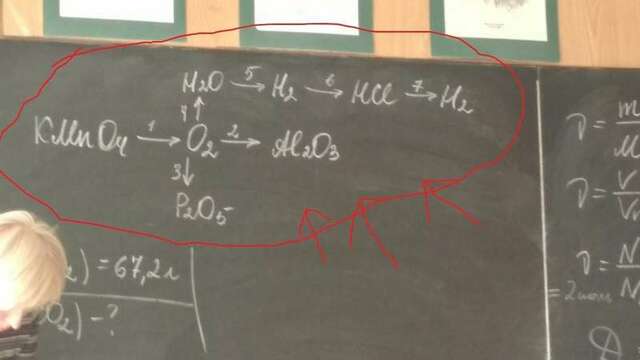 H₂O →5 H₂ →6 HCl →7 H₂
4 ↑
KMnO₄ →1 O₂ →2 Al₂O₃
3 ↓
P₂O₅
₂) = 67,2 л
O₂) – ?
ν = m/M
ν = V/V
ν = N/N
= 2 моль